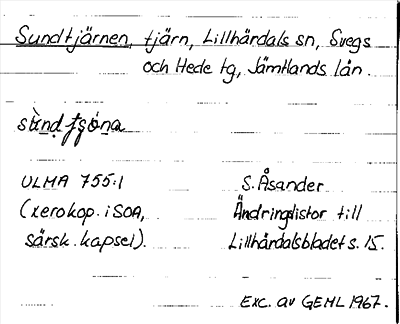 Sundtjärnen, tjärn, Lillhärdals sn, Svegs
och Hede tg, Jämtlands län.
ULMA 755:1
(xerokop. i SOA,
särsk. kapsel).
S. Åsander
Ändringslistor till
Lillhärdalsbladet s. 15.
Exc. av GEHL 1967.